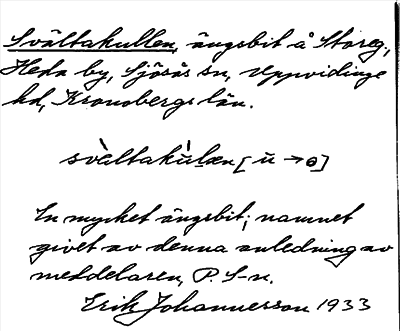 Svältakullen, ängsbit å Storeg,
Heda by, Sjösås sn, Uppvidinge
hd, Kronobergs län.
svàltakùlæn [ü → ɵ]
En mycket ängsbit; namnet
givet av denna anledning av
meddelaren, P. S-n.
Erik Johannesson 1933